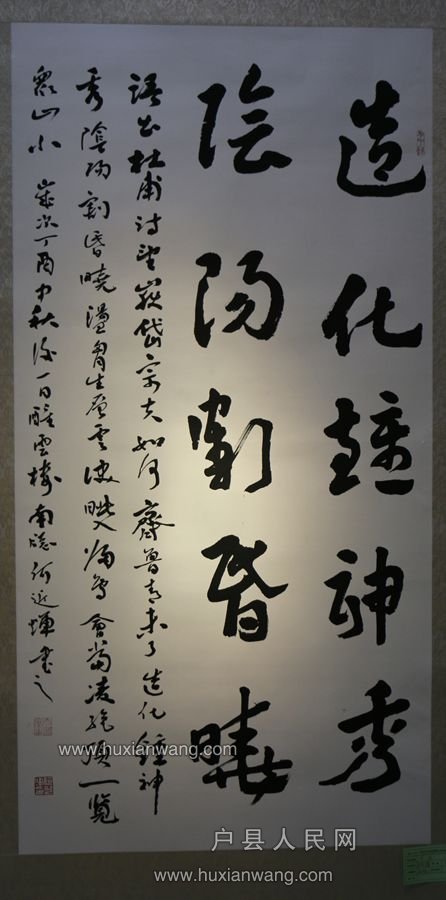 造化鍾神秀
陰陽割昏曉
語出杜甫詩望嶽岱宗夫如何齊魯青未了造化鍾神
秀陰陽割昏曉盪胸生層雲決眥入歸鳥會當凌絕頂一覽
眾山小 歲次丁酉中秋後一日醉雲樓南窓何近輝書之
www.huxianwang.com
www.huxianwang.com
户县人民网
www.huxianwang.com